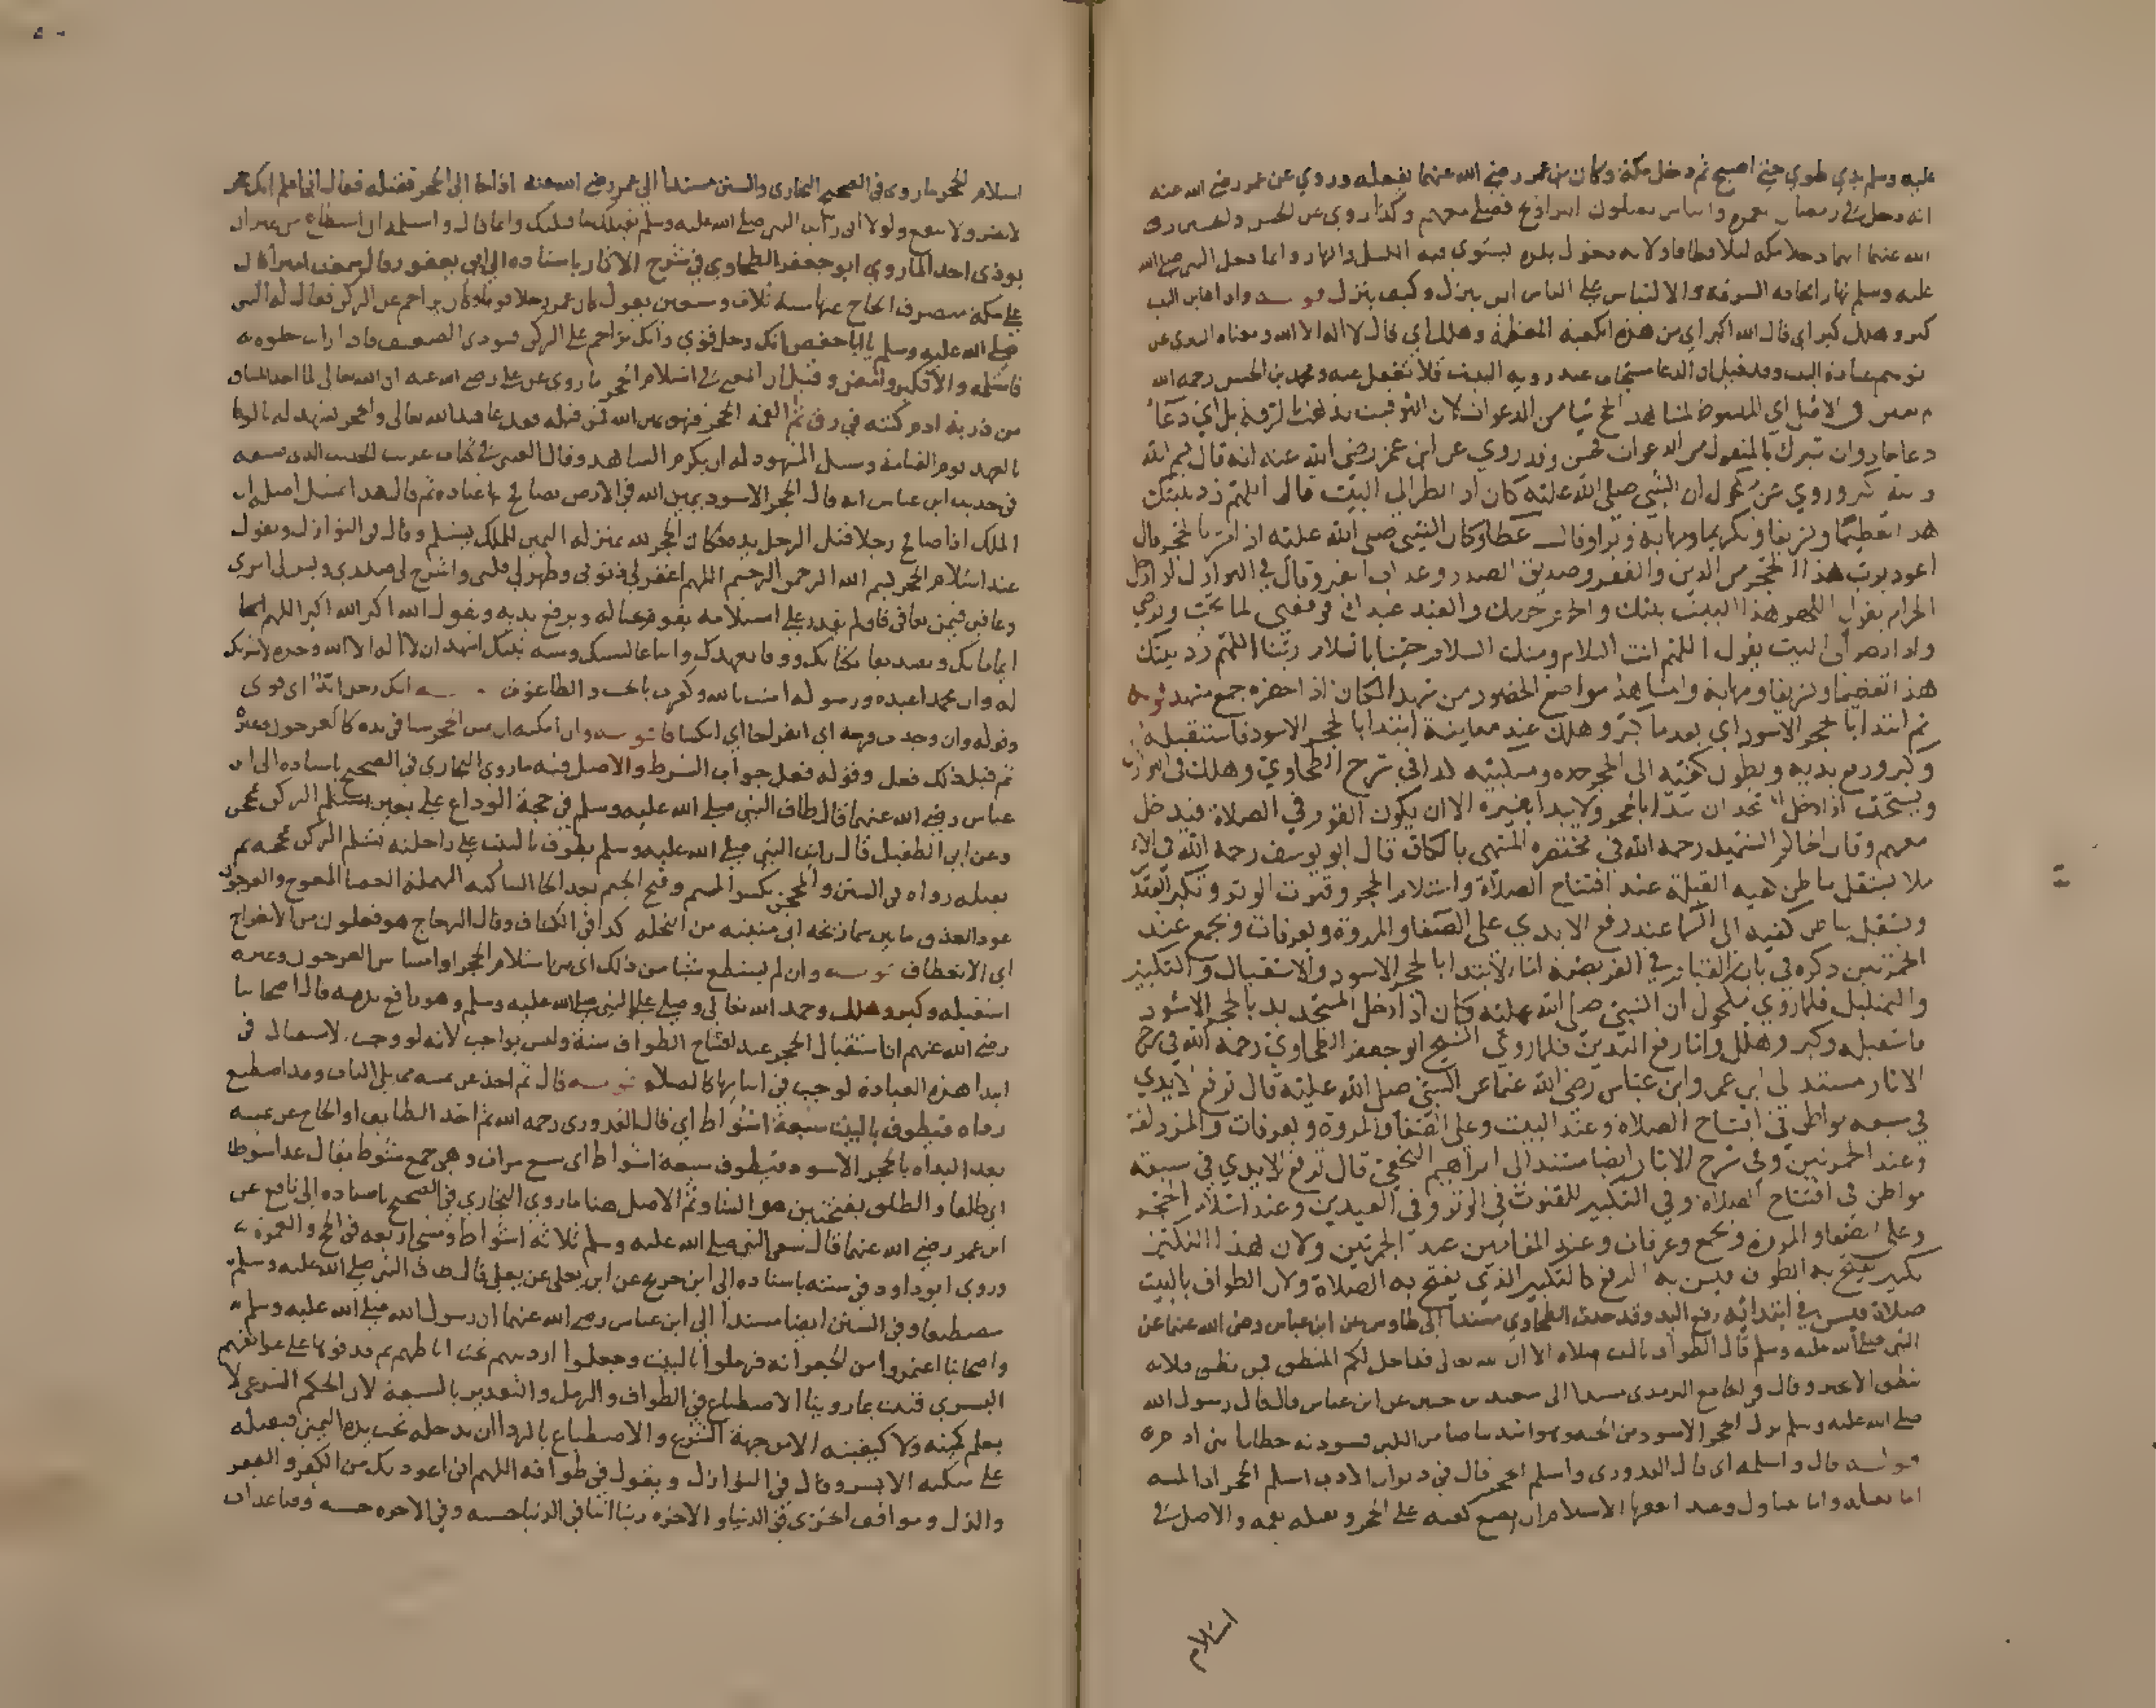 عليه وسلم بذي طوي حتى اصبح ثم دخل مكة وكان بن عمر رضي الله عنهما يفعله وروي عن عمر رضي الله عنه
انه دخل في رمضان بعمره والناس يصلون التراويح فصلى معهم وكذا روي عن الحسن والحسين رضي
الله عنهما انهما دخلا مكه ليلا ولانه دخول بلده ليستوي فيه الليل والنهار وانما دخل النبي صلى الله
عليه وسلم نهارا على الناس اين ينزل وكيف ينزل قوله واذا عاين البيت
كبر وهلل كبر اي قال الله اكبر اي من هذه الكعبة المعظمة وهلل اي قال لا اله الا الله ومعناه التبري عن
توهم عبادة البيت وقد قيل ان الدعا مستجاب عند رويه البيت فلا تغفل عنه ومحمد بن الحسن رحمه الله
لم يعين في الاصل اي المبسوط لمشاهد الحج شيا من الدعوات لان التوقيت يذهب بالرقة بل اي دعا
دعا جاز وان تبرك بالمنقول من الدعوات فحسن وقد روي عن ابن عمر رضي الله عنه انه قال بسم الله
والله اكبر وروي عن مكحول ان النبي صلى الله عليه كان اذا نظر الى البيت قال اللهم زد بيتك
هذا تعظيما وتشريفا وتكريما ومهابة وبرا وقال عطا وكان النبي صلى الله عليه اذا مر بالحجر قال
اعوذ برب هذا الحجر من الدين والفقر وضيق الصدر وعذاب القبر وقال في النوازل اذا دخل
الحرام يقول اللهم هذا البيت بيتك والحرم حرمك والعبد عبدك فوفقني لما تحب وترضى
واذا نظر الى البيت يقول اللهم انت السلام ومنك السلام حينا بالسلام ربنا اللهم زد بيتك
هذا تعظيما وتشريفا ومهابة والمشاهد مواضع الحضور من شهد المكان اذا حضره جمع مشهد قوله
ثم ابتدا بالحجر الاسود اي بعد ما كبر وهلل عند معاينة البيت ابتدا بالحجر الاسود فاستقبله
وكبر ورفع يديه وبطون كفيه الى الحجر كذا في شرح الطحاوي وهلل في النوازل
ويستحب اذا دخل المسجد ان يبدا بالحجر ولا يبدا بغيره الا ان يكون القوم في الصلاة فيدخل
معهم وقال الحاكم الشهيد رحمه الله في مختصره المسمى بالكافي قال ابو يوسف رحمه الله في الاملا
يستقبل بباطن كفيه القبلة عند افتتاح الصلاة واستلام الحجر وقنوت الوتر وتكبير العيد
ويستقبل بباطن كفيه الى السما عند رفع الايدي على الصفا والمروة وبعرفات وبجمع عند
الجمرتين ذكره في باب القيام في الفريضة اما الابتدا بالحجر الاسود والاستقبال والتكبير
والتهليل فلما روي مكحول ان النبي صلى الله عليه وكان اذا دخل المسجد بدا بالحجر الاسود
فاستقبله وكبر وهلل واما رفع اليدين فلما روي الشيخ ابو جعفر الطحاوي رحمه الله في شرح
الاثار مسندا الى ابن عمر وابن عباس رضي الله عنهما عن النبي صلى الله عليه قال ترفع الايدي
في سبعه مواطن في افتتاح الصلاة وعند البيت وعلى الصفا والمروة وبعرفات والمزدلفة
وعند الجمرتين وفي شرح الاثار ايضا مسندا الى ابراهيم النخعي قال ترفع الايدي في سبعة
مواطن في افتتاح الصلاة وفي التكبير للقنوت في الوتر وفي العيدين وعند استلام الحجر
وعلى الصفا والمروة وبجمع وعرفات وعند المقامين عند الجمرتين ولان هذا التكبير
تكبير يفتتح به الطواف فيسن به الرفع كالتكبير الذي يفتح به الصلاة ولان الطواف بالبيت
صلاة فيسن في ابتدائه رفع اليد وقد حدث الطحاوي مسندا الى طاوس عن ابن عباس رضي الله عنهما عن
النبي صلى الله عليه وسلم قال الطواف بالبيت صلاة الا ان الله تعالى قد احل لكم المنطق فمن نطق فلا
ينطق الا بخير وقال في الجامع الترمذي مسندا الى سعيد بن جبير عن ابن عباس قال قال رسول الله
صلى الله عليه وسلم نزل الحجر الاسود من الجنة وهو اشد بياضا من اللبن فسودته خطايا بني ادم
قوله قال واستلمه اي قال القدوري واستلم الحجر قال في ديوان الادب استلم الحجر اذا لمسه
اما بقبلة واما بتناول وعند الفقها الاستلام ان يضع كفيه على الحجر ويقبله بفمه والاصل في
استلام
استلام الحجر ما روي في الصحيح البخاري والسنن مسندا الى عمر رضي الله عنه انه جا الى الحجر فقبله فقال اني اعلم انك حجر
لا تضر ولا تنفع ولولا اني رايت النبي صلى الله عليه وسلم يقبلك ما قبلتك وانما قال واستلمه ان استطاع من غير ان
يوذي احدا لما روي ابو جعفر الطحاوي في شرح الاثار باسناده الى ابي يعفور قال سمعت اميرا كان
على مكة منصرف الحاج عنها سنة ثلاث وسبعين يقول كان عمر رجلا قويا وكان يزاحم على الركن فقال له النبي
صلى الله عليه وسلم يا ابا حفص انك رجل قوي وانك تزاحم على الركن فتوذي الضعيف فاذا رايت خلوة
فاستلمه والا فكبر وامض وقيل ان المعنى في استلام الحجر ما روي عن علي رضي الله عنه ان الله تعالى لما اخذ الميثاق
من ذرية ادم كتبه في رق ثم القمه الحجر فهو يمين الله فمن قبله فقد عاهد الله تعالى والحجر يشهد له بالوفا
بالعهد يوم القيامة وسبيل المشهود له ان يكرم الشاهد وقال القتبي في كتاب غريب الحديث الذي صنفه
في حديث ابن عباس انه قال الحجر الاسود يمين الله في الارض يصافح بها عباده ثم قال هذا تمثيل اصله ان
الملك اذا صافح رجلا قبل الرجل يده فكان الحجر لله بمنزلة اليمين للملك يستلم وقال في النوازل ويقول
عند استلام الحجر بسم الله الرحمن الرحيم اللهم اغفر لي ذنوبي وطهر لي قلبي واشرح لي صدري ويسر لي امري
وعافني فيمن تعافي فان لم يقدر على استلامه يقوم بحياله ويرفع يديه ويقول الله اكبر الله اكبر اللهم
ايمانا بك وتصديقا بكتابك ووفا بعهدك واتباعا لسنتك وسنة نبيك اشهد ان لا اله الا الله وحده لا شريك
له وان محمدا عبده ورسوله امنت بالله وكفرت بالجبت والطاغوت قوله انك رجل ايد اي قوي
وقوله وان وجدت فرجة اي انفراجا اي انكشافا قوله وان امكنه ان يمس الحجر شيا في يده كالعرجون وغيره
ثم قبل ذلك فعل وقوله فعل جواب الشرط والاصل فيه ما روي البخاري في الصحيح باسناده الى ابن
عباس رضي الله عنهما قال طاف النبي صلى الله عليه وسلم في حجة الوداع على بعير يستلم الركن بمحجن
وعن ابي الطفيل قال رايت النبي صلى الله عليه وسلم يطوف بالبيت على راحلته يستلم الركن بمحجنه ثم
يقبله رواه في السنن والمحجن بكسر الميم وفتح الجيم بعد الحا الساكنه المهملة العصا المعوج والعرجون
عود العذق ما بين شماريخه الى منبته من النخلة كذا في الكشاف وقال الزجاج هو فعلون من الانعراج
اي الانعطاف قوله وان لم يستطع شيا من ذلك اي من استلام الحجر او امساس العرجون وغيره
استقبله وكبر وهلل وحمد الله تعالى وصلى على النبي صلى الله عليه وسلم وهو رافع يديه قال اصحابنا
رضي الله عنهم ان استقبال الحجر عند افتتاح الطواف سنة وليس بواجب لانه لو وجب الاستقبال في
ابتدا هذه العبادة لوجب في انتهائها كالصلاة قوله قال ثم اخذ عن يمينه مما يلي الباب وقد اضطبع
رداه فيطوف بالبيت سبعة اشواط اي قال القدوري رحمه الله ثم اخذ الطايف او الحاج عن يمينه
بعد البداه بالحجر الاسود فيطوف سبعة اشواط اي سبع مرات وهي جمع شوط يقال عدا شوطا
اي طلقا والطلق بفتحتين هو الشاو ثم الاصل هنا ما روي البخاري في الصحيح باسناده الى نافع عن
ابن عمر رضي الله عنهما قال سعى النبي صلى الله عليه وسلم ثلاثة اشواط ومشى اربعه في الحج والعمرة
وروي ابو داود في سننه باسناده الى ابن جريج عن ابن يعلى عن يعلى قال طاف النبي صلى الله عليه وسلم
مضطبعا وفي السنن ايضا مسندا الى ابن عباس رضي الله عنهما ان رسول الله صلى الله عليه وسلم
واصحابه اعتمروا من الجعرانة فرملوا بالبيت وجعلوا ارديتهم تحت اباطهم ثم قد فوها على عواتقهم
اليسرى فثبت بما روينا الاضطباع في الطواف والرمل والتقدير بالسبعة لان الحكم الشرعي لا
يعلم كميته ولا كيفيته الا من جهة الشرع والاضطباع بالردا ان يدخله تحت يده اليمنى فيجعله
على منكبه الايسر وقال في النوازل ويقول في طوافه اللهم اني اعوذ بك من الكفر والفقر
والذل ومواقف الخزي في الدنيا والاخرة ربنا اتنا في الدنيا حسنه وفي الاخرة حسنه وقنا عذاب